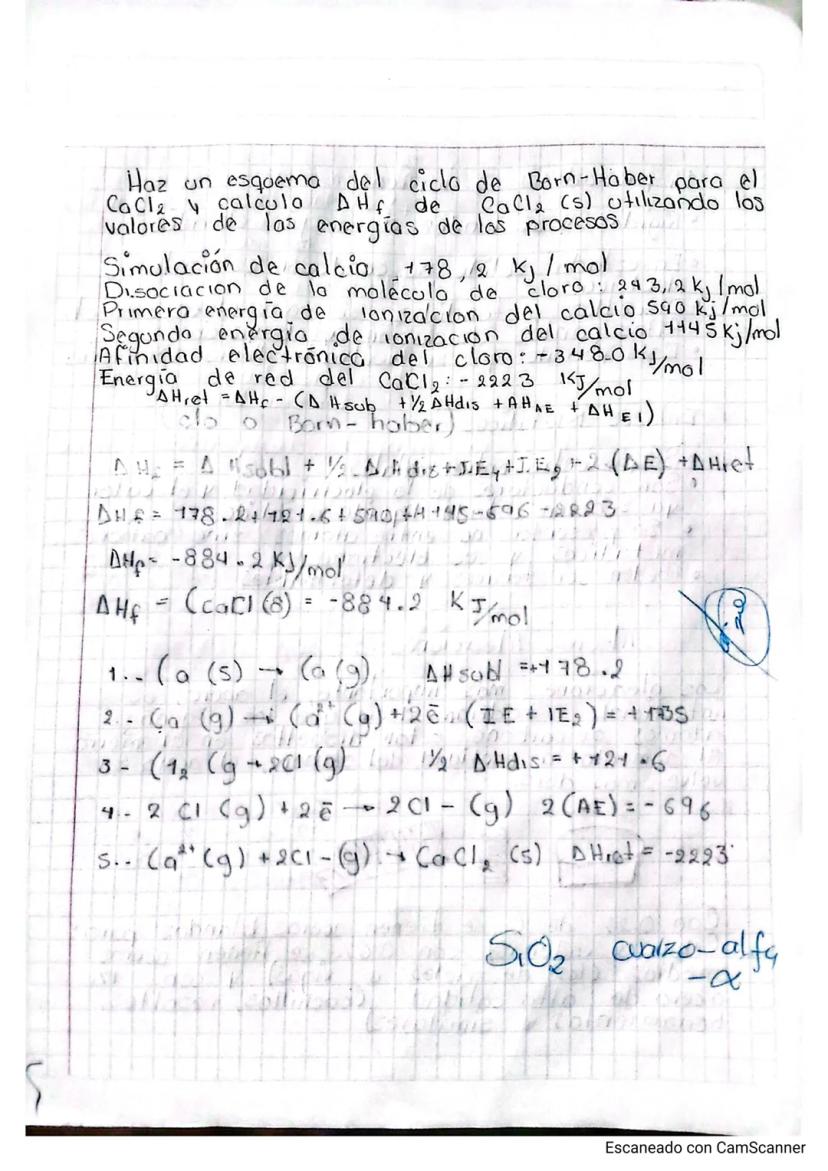 Haz un esquema del ciclo de Born-Haber para el
CaCl2 y calcula ΔHf de CaCl2 (s) utilizando los
valores de las energías de los procesos
Simulación de calcio +78,2 Kj / mol
Disociacion de la molécula de cloro: 243,2 Kj/mol
Primera energía de ionización del calcio 590 Kj/mol
Segunda energía de ionizacion del calcio 1145 Kj/mol
Afinidad electrónica del cloro: -348.0 kj/mol
Energía de red del CaCl2: -2223 KJ/mol
ΔHret = ΔHf - (ΔHsub + 1/2 ΔHdis + ΔHAE + ΔHEI)
clo o Born-haber)
ΔHf = ΔHsubl + 1/2 ΔHdis + IE1 + IE2 + 2 (ΔE) + ΔHret
ΔHf = 178.2 + 121.6 + 590 + 1145 - 696 - 2223
ΔHf = -884.2 KJ/mol
ΔHf = (CaCl (s) = -884.2 KJ/mol
1.- Ca (s) → Ca (g) ΔHsubl = +178.2
2.- Ca (g) → Ca2+ (g) + 2ē (IE + IE2) = + 1735
3- Cl2 (g → 2Cl (g) 1/2 ΔHdis = + 121.6
4.- 2 Cl (g) + 2ē → 2Cl - (g) 2(AE) = - 696
5.. Ca2+ (g) + 2Cl - (g) → CaCl2 (s) ΔHret = -2223
SiO2 cuarzo-alfa
-α
5
Escaneado con CamScanner